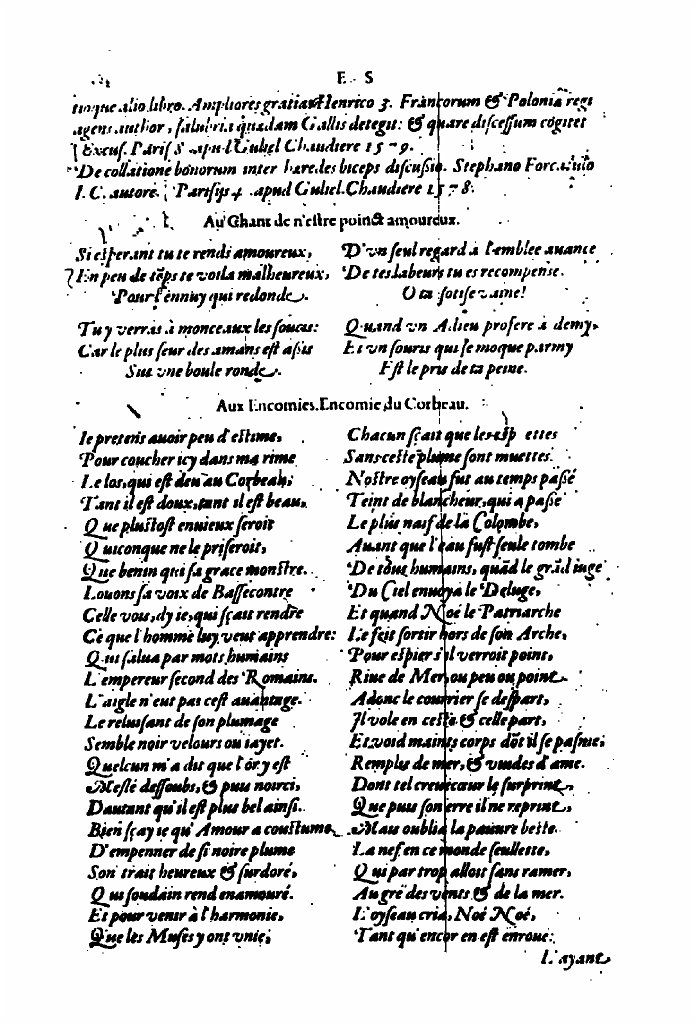 E S
tinque alio libro. Ampliores gratias Henrico 3. Francorum & Poloniæ regi
agens author, salubria quædam Gallis detegit: & quare discessum cogitet
Excus. Paris 8 apud Guliel Chaudiere 15 79.
De collatione bonorum inter hæredes biceps discussio. Stephano Forcatulo
I. C. autore. Parisijs 4 apud Guliel. Chaudiere 1578.
Au Chant de n'estre poinct amoureux.
Si esperant tu te rends amoureux,
En peu de tẽps te voila malheureux,
Pour l'ennuy qui redonde.
Tu y verras à monceaux les soucis:
Car le plus seur des amans est assis
Sur vne boule ronde.
D'vn seul regard à l'emblee auance
De tes labeurs tu es recompense.
O ta sotise vaine!
Quand vn Adieu profere à demy,
Et vn souris qui se moque parmy
Est le pris de ta peine.
Aux Encomies. Encomie du Corbeau.
Ie pretens auoir peu d'estime,
Pour coucher icy dans ma rime
Le los, qui est deu au Corbeau;
Tant il est doux, tant il est beau,
Que plustost enuieux seroit
Quiconque ne le priseroit,
Que benin qui sa grace monstre.
Louons sa voix de Bassecontre
Celle vois, dy ie, qui sçait rendre
Ce que l'homme luy veut apprendre:
Qui salua par mots humains
L'empereur second des Romains.
L'aigle n'eut pas cest auantage.
Le reluisant de son plumage
Semble noir velours ou iayet.
Quelcun m'a dit que l'or y est
Meslé dessoubs, & puis noirci,
Dautant qu'il est plus bel ainsi.
Bien sçay ie qu'Amour a coustume
D'empenner de si noire plume
Son trait heureux & surdoré,
Qui soudain rend enamouré.
Et pour venir à l'harmonie,
Que les Muses y ont vnie;
Chacun sçait que les esp ettes
Sans ceste plume sont muettes.
Nostre oyseau fut au temps passé
Teint de blancheur, qui a passé
Le plus naif de la Colombe,
Auant que l'eau fust seule tombe
De tous humains, quãd le grãd iuge
Du Ciel enuoya le Deluge,
Et quand Noé le Patriarche
Le feit sortir hors de son Arche,
Pour espier s'il verroit point,
Riue de Mer, ou peu ou point.
Adonc le courrier se despart,
Il vole en ceste & celle part,
Et void maints corps dõt il se pasme;
Remplis de mer, & vuides d'ame.
Dont tel creuecœur le surprint,
Que puis son erre il ne reprint,
Mais oublia la pauure beste
La nef en ce monde seullette,
Qui par trop alloit sans ramer,
Au gré des vents & de la mer.
L'oyseau cria, Noé Noé,
Tant qu'encor en est enroue:
L'ayant